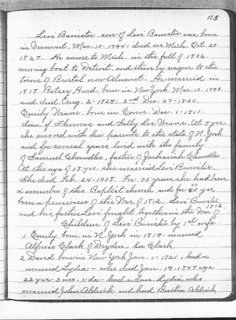 115
Levi Banister son of Levi Banister was born
in Vermont, Mar. 10, 1794. died in Mich. Oct. 27
1867. He came to Mich. in the fall of 1836
coming boat to Detroit, and thence by wagon to the
town of Bristol near Almont. He married in
1818 Betsey Hurd, born in New York Mar. 10, 1800
and died Aug. 2 - 1839. 2nd Dec. 27 - 1840.
Emily Frane, born in Conn. Dec. 1 - 1811.
dau. of Thomas and Sally Lee Frane. At 7 yrs
she moved with her parents to the state of N. York
and for several years lived with the family
of Samuel Chandler, father of Zachariah Chandler
At the age of 18 yrs she married Levi Banister.
She died Feb. 24 - 1908. For 75 years she had been
a member of the Baptist church and for 40 yrs
been a pensioner of the War of 1812. Levi Banister
and his father Levi fought together in the War of 1812
Children of Levi Banister by 1st wife
1 Emily born in N. York in 1819. married
Alfred Clark of Dryden. see Clark
2 David born in New York Jan. 11 - 1821. had a
Lydia - who died Jan. 19. 1849 age
22 yrs 2 mo. had a dau. Lydia who
married John Aldrich and had Burton Aldrich